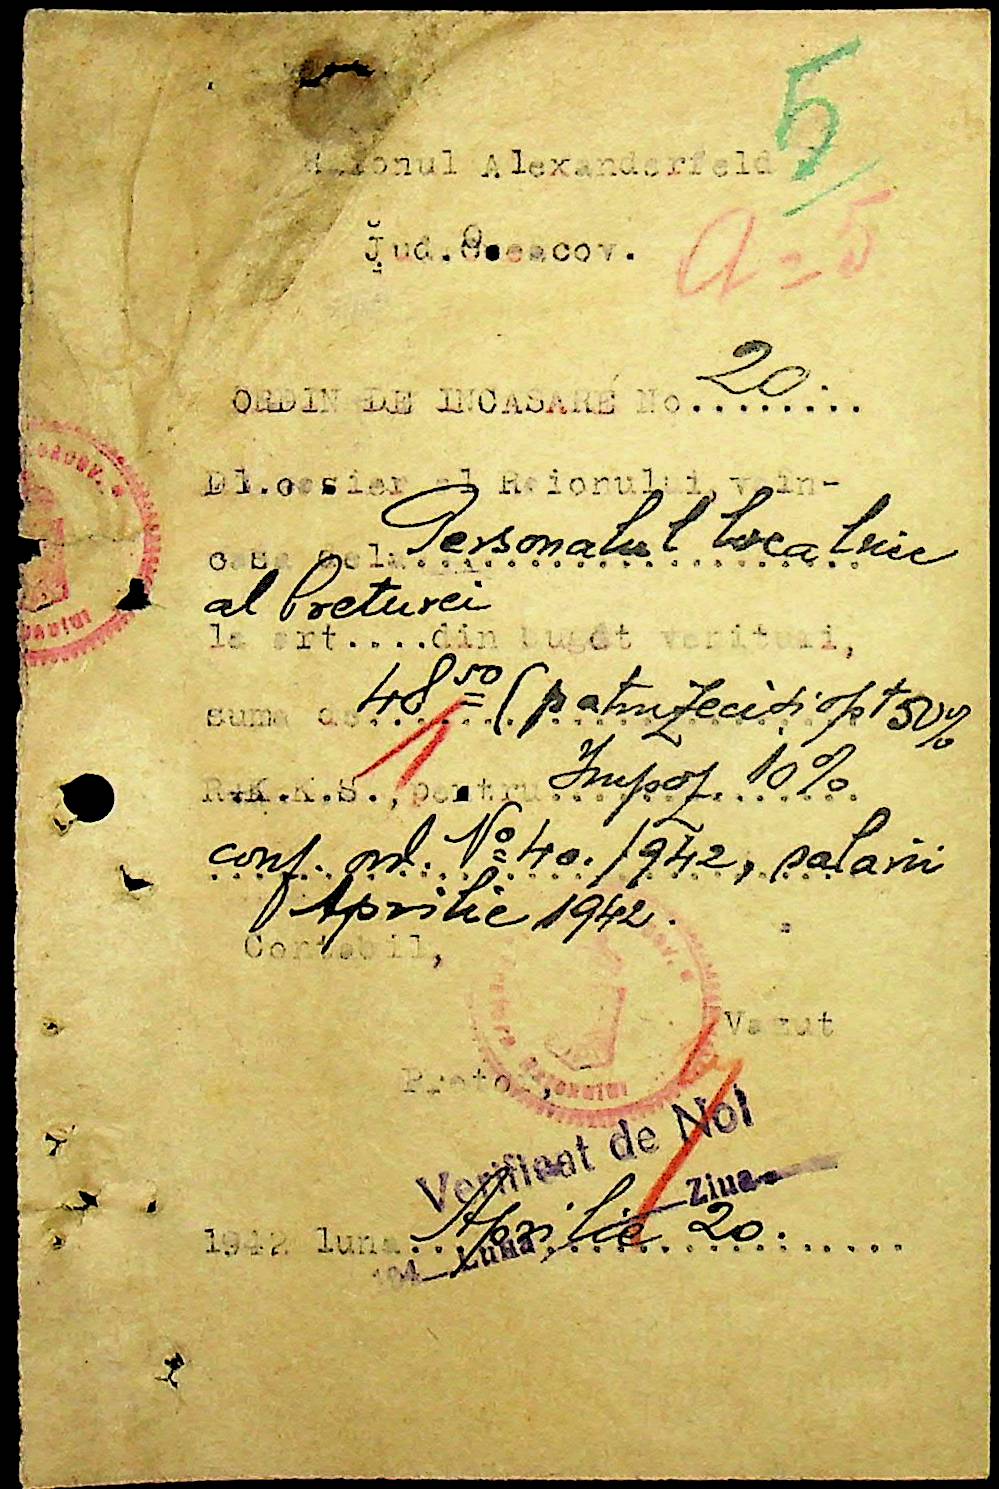 5
Raionul Alexanderfeld
a=5
Jud. Oceacov.
ORDIN DE INCASARE No. 20
Dl.casier al Raionului, v. in-
casa dela Personalul localnic
al Preturei
la art....din bugét venituri,
suma de 48 50 (patruzeci și opt 50%
R.K.K.S., pentru Impoz. 10%
conf. ord. No 40. /942, salarii
Aprilie 1942.
Contabil,
Vazut
Pretor,
Verificat de Noi
Ziua
1942 luna Aprilie 20.
194 Luna